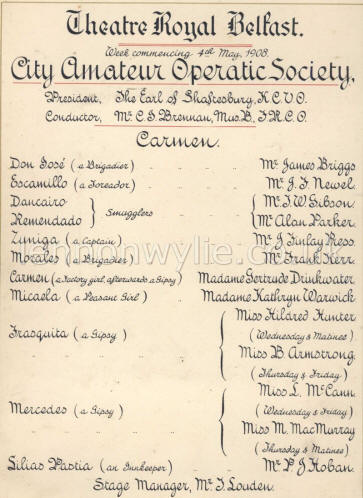 Theatre Royal Belfast.
Week commencing 4th May, 1908.
City Amateur Operatic Society,
President, The Earl of Shaftesbury, K.C.V.O.
Conductor, Mr C. J. Brennan, Mus. B., F.R.C.O.
Carmen.
Don José (a Brigadier) Mr James Briggs
Escamillo (a Toreador) Mr J. F. Newel
Dancairo Mr J. W. Gibson
Smugglers
Remendado Mr Alan Parker
Zuniga (a Captain) Mr J Finlay Ress
Morales (a Brigadier) Mr Frank Kerr
Carmen (a Factory girl, afterwards a Gipsy) Madame Gertrude Drinkwater
Micaela (a Peasant Girl) Madame Kathryn Warwick
Miss Hildred Hunter
(Wednesday & Matinee)
Frasquita (a Gipsy)
Miss B Armstrong
(Thursday & Friday)
Miss L. McCann
(Wednesday & Friday)
Mercedes (a Gipsy)
Miss M. MacMurray
(Thursday & Matinee)
Lilias Pastia (an Innkeeper) Mr P J Hoban
Stage Manager, Mr T. Louden.